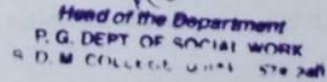 Head of the Department
P. G. DEPT OF SOCIAL WORK
S D. M COLLEGE